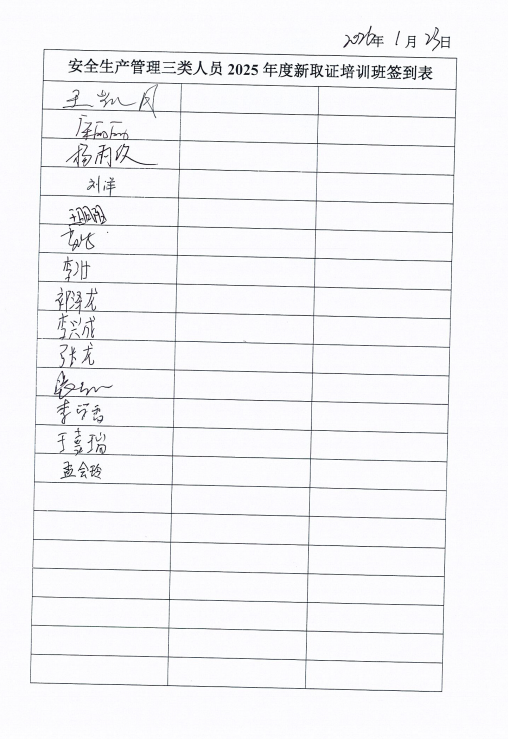 2026年 1月 23日
安全生产管理三类人员 2025 年度新取证培训班签到表
王凯风
杨雨欣
刘洋
王明明
祁泽龙
李兴成
张龙
于嘉瑞
孟会玲